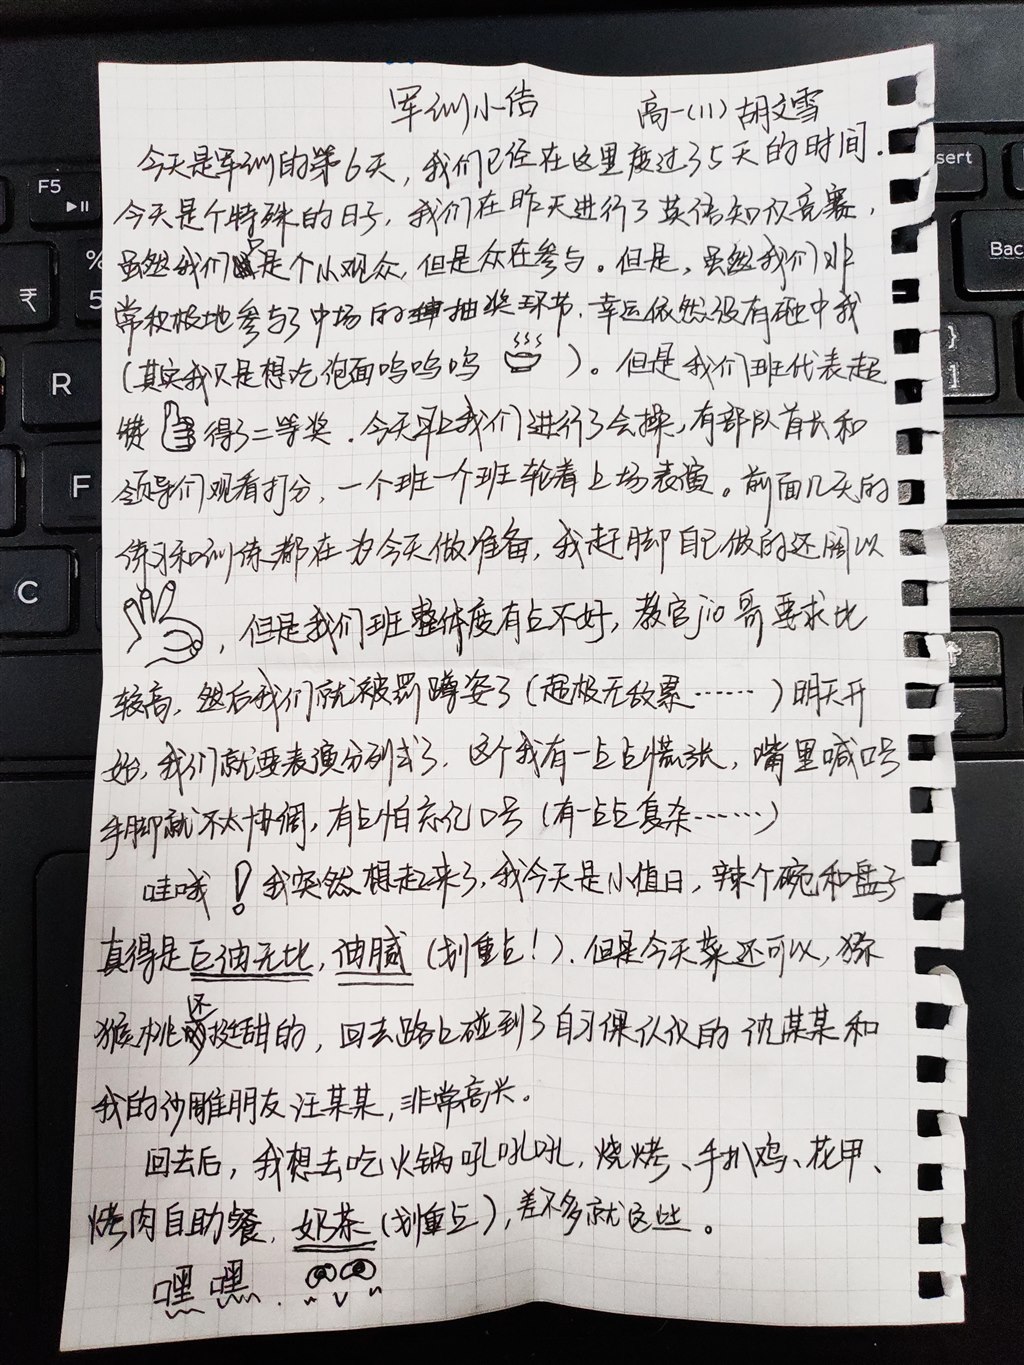 军训小结 高一(11) 胡文雪
今天是军训的第6天，我们已经在这里度过了5天的时间.
今天是个特殊的日子，我们在昨天进行了英语知识竞赛，
虽然我们只是个小观众，但是众在参与。但是，虽然我们非
常积极地参与了中场的抽奖环节，幸运依然没有砸中我
(其实我只是想吃泡面呜呜呜 )。但是我们班代表超
赞 得了二等奖．今天早上我们进行了会操，有部队首长和
领导们观看打分，一个班一个班轮着上场表演。前面几天的
练习和训练都在为今天做准备，我赶脚自己做的还阔以
，但是我们班整体度有点不好，教官jio哥要求比
较高，然后我们就被罚蹲姿了(超极无敌累……)明天开
始，我们就要表演分列式了．这个我有一点点慌张，嘴里喊口号
手脚就不太协调，有点怕忘记口号(有一点点复杂……)
哇哦！我突然想起来了，我今天是小值日，辣个碗和盘子
真得是巨油无比，油腻(划重点！)．但是今天菜还可以，猕
猴桃还挺甜的，回去路上碰到了自习课认识的沈某某和
我的沙雕朋友汪某某，非常高兴。
回去后，我想去吃火锅吼吼吼，烧烤、手扒鸡、花甲、
烤肉自助餐，奶茶(划重点)，差不多就这些。
嘿嘿．
F5
%
5
₹
R
F
C
sert
Bac
}
]